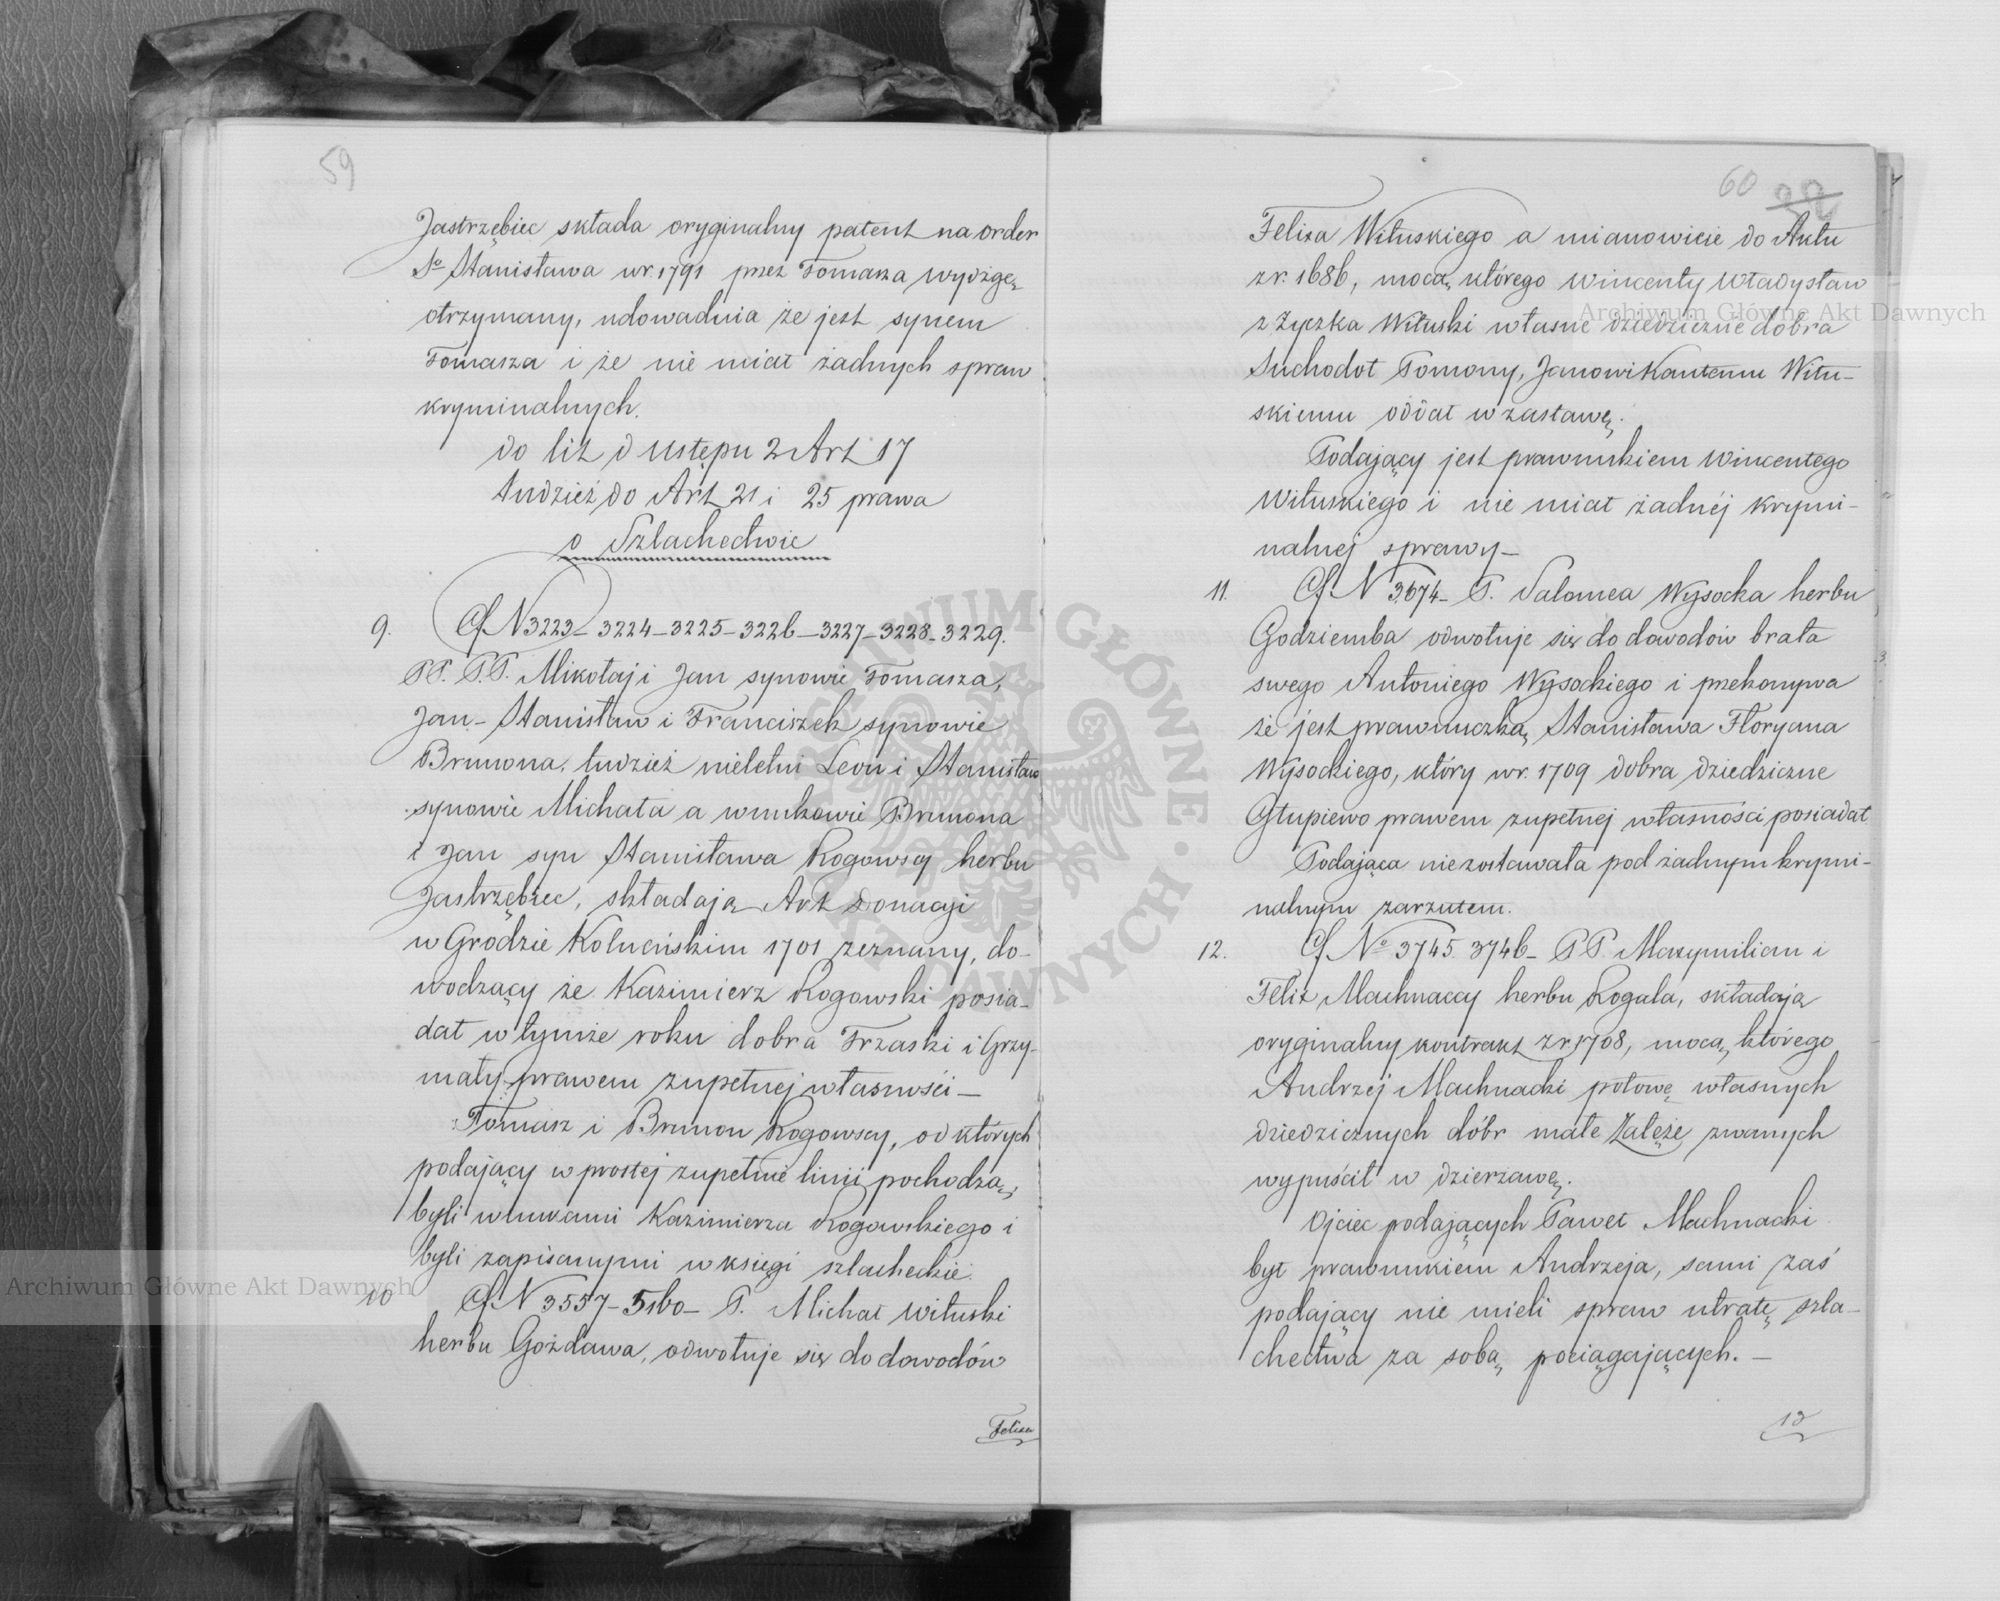 59
Jastrzębiec składa oryginalny patent na order
Sº Stanisława w r. 1791 przez Tomasza Wydżgę
otrzymany, udowadnia że jest synem
Tomasza i że nie miał żadnych spraw
kryminalnych.
do lit d ustępu 2 Art 17
tudzież do Art 21 i 25 prawa
o Szlachectwie
9. Cf N 3223 - 3224 - 3225 - 3226 - 3227 - 3228 - 3229.
PP. P.P. Mikołaj i Jan synowie Tomasza,
Jan - Stanisław i Franciszek synowie
Brunona, tudzież nieletni Leon i Stanisław
synowie Michała a wnukowie Brunona
i Jan syn Stanisława Rogowscy herbu
Jastrzębiec, składają Akt Donacyi
w Grodzie 1701 zeznany, do-
wodzący że Kazimierz Rogowski posia-
dał w tymże roku dobra Trzaski i Grzy-
mały prawem zupełnej własności —
Tomasz i Brunon Rogowscy, od których
podający w prostej zupełnie linii pochodzą,
byli wnukami Kazimierza Rogowskiego i
byli zapisanymi w księgi szlacheckie.
10 Cf N 3557 - P. Michał Wituski
herbu Gozdawa, odwołuje się do dowodów
Felixa
60
Felixa Wituskiego a mianowicie do Aktu
z r. 1686, mocą którego Wincenty Władysław
z Życzka Wituski własne dziedziczne dobra
Suchodół Pomony, Janowi Kantemu Witu-
skiemu oddał w zastawę.
Podający jest prawnukiem Wincentego
Wituskiego i nie miał żadnéj krymi-
nalnej sprawy —
11. Cf N 3674 - P. Salomea Wysocka herbu
Godziemba odwołuje się do dowodów brata
swego Antoniego Wysockiego i przekonywa
że jest prawnuczką Stanisława Floryana
Wysockiego, który w r. 1709 dobra dziedziczne
Głupiewo prawem zupełnej własności posiadał
Podająca nie zostawała pod żadnym krymi-
nalnym zarzutem.
12. Cf Nº 3745. 3746 - P P. Maxymilian i
Felix Machnaccy herbu Rogala, składają
oryginalny kontrakt z r. 1708, mocą którego
Andrzej Machnacki połowę własnych
dziedzicznych dóbr małe Załęże zwanych
wypuścił w dzierżawę.
Ojciec podających Paweł Machnacki
był prawnukiem Andrzeja, sami zaś
podający nie mieli spraw utratę szla-
chectwa za sobą pociągających. —
Archiwum Główne Akt Dawnych
Archiwum Główne Akt Dawnych
ARCHIWUM GŁÓWNE AKT DAWNYCH